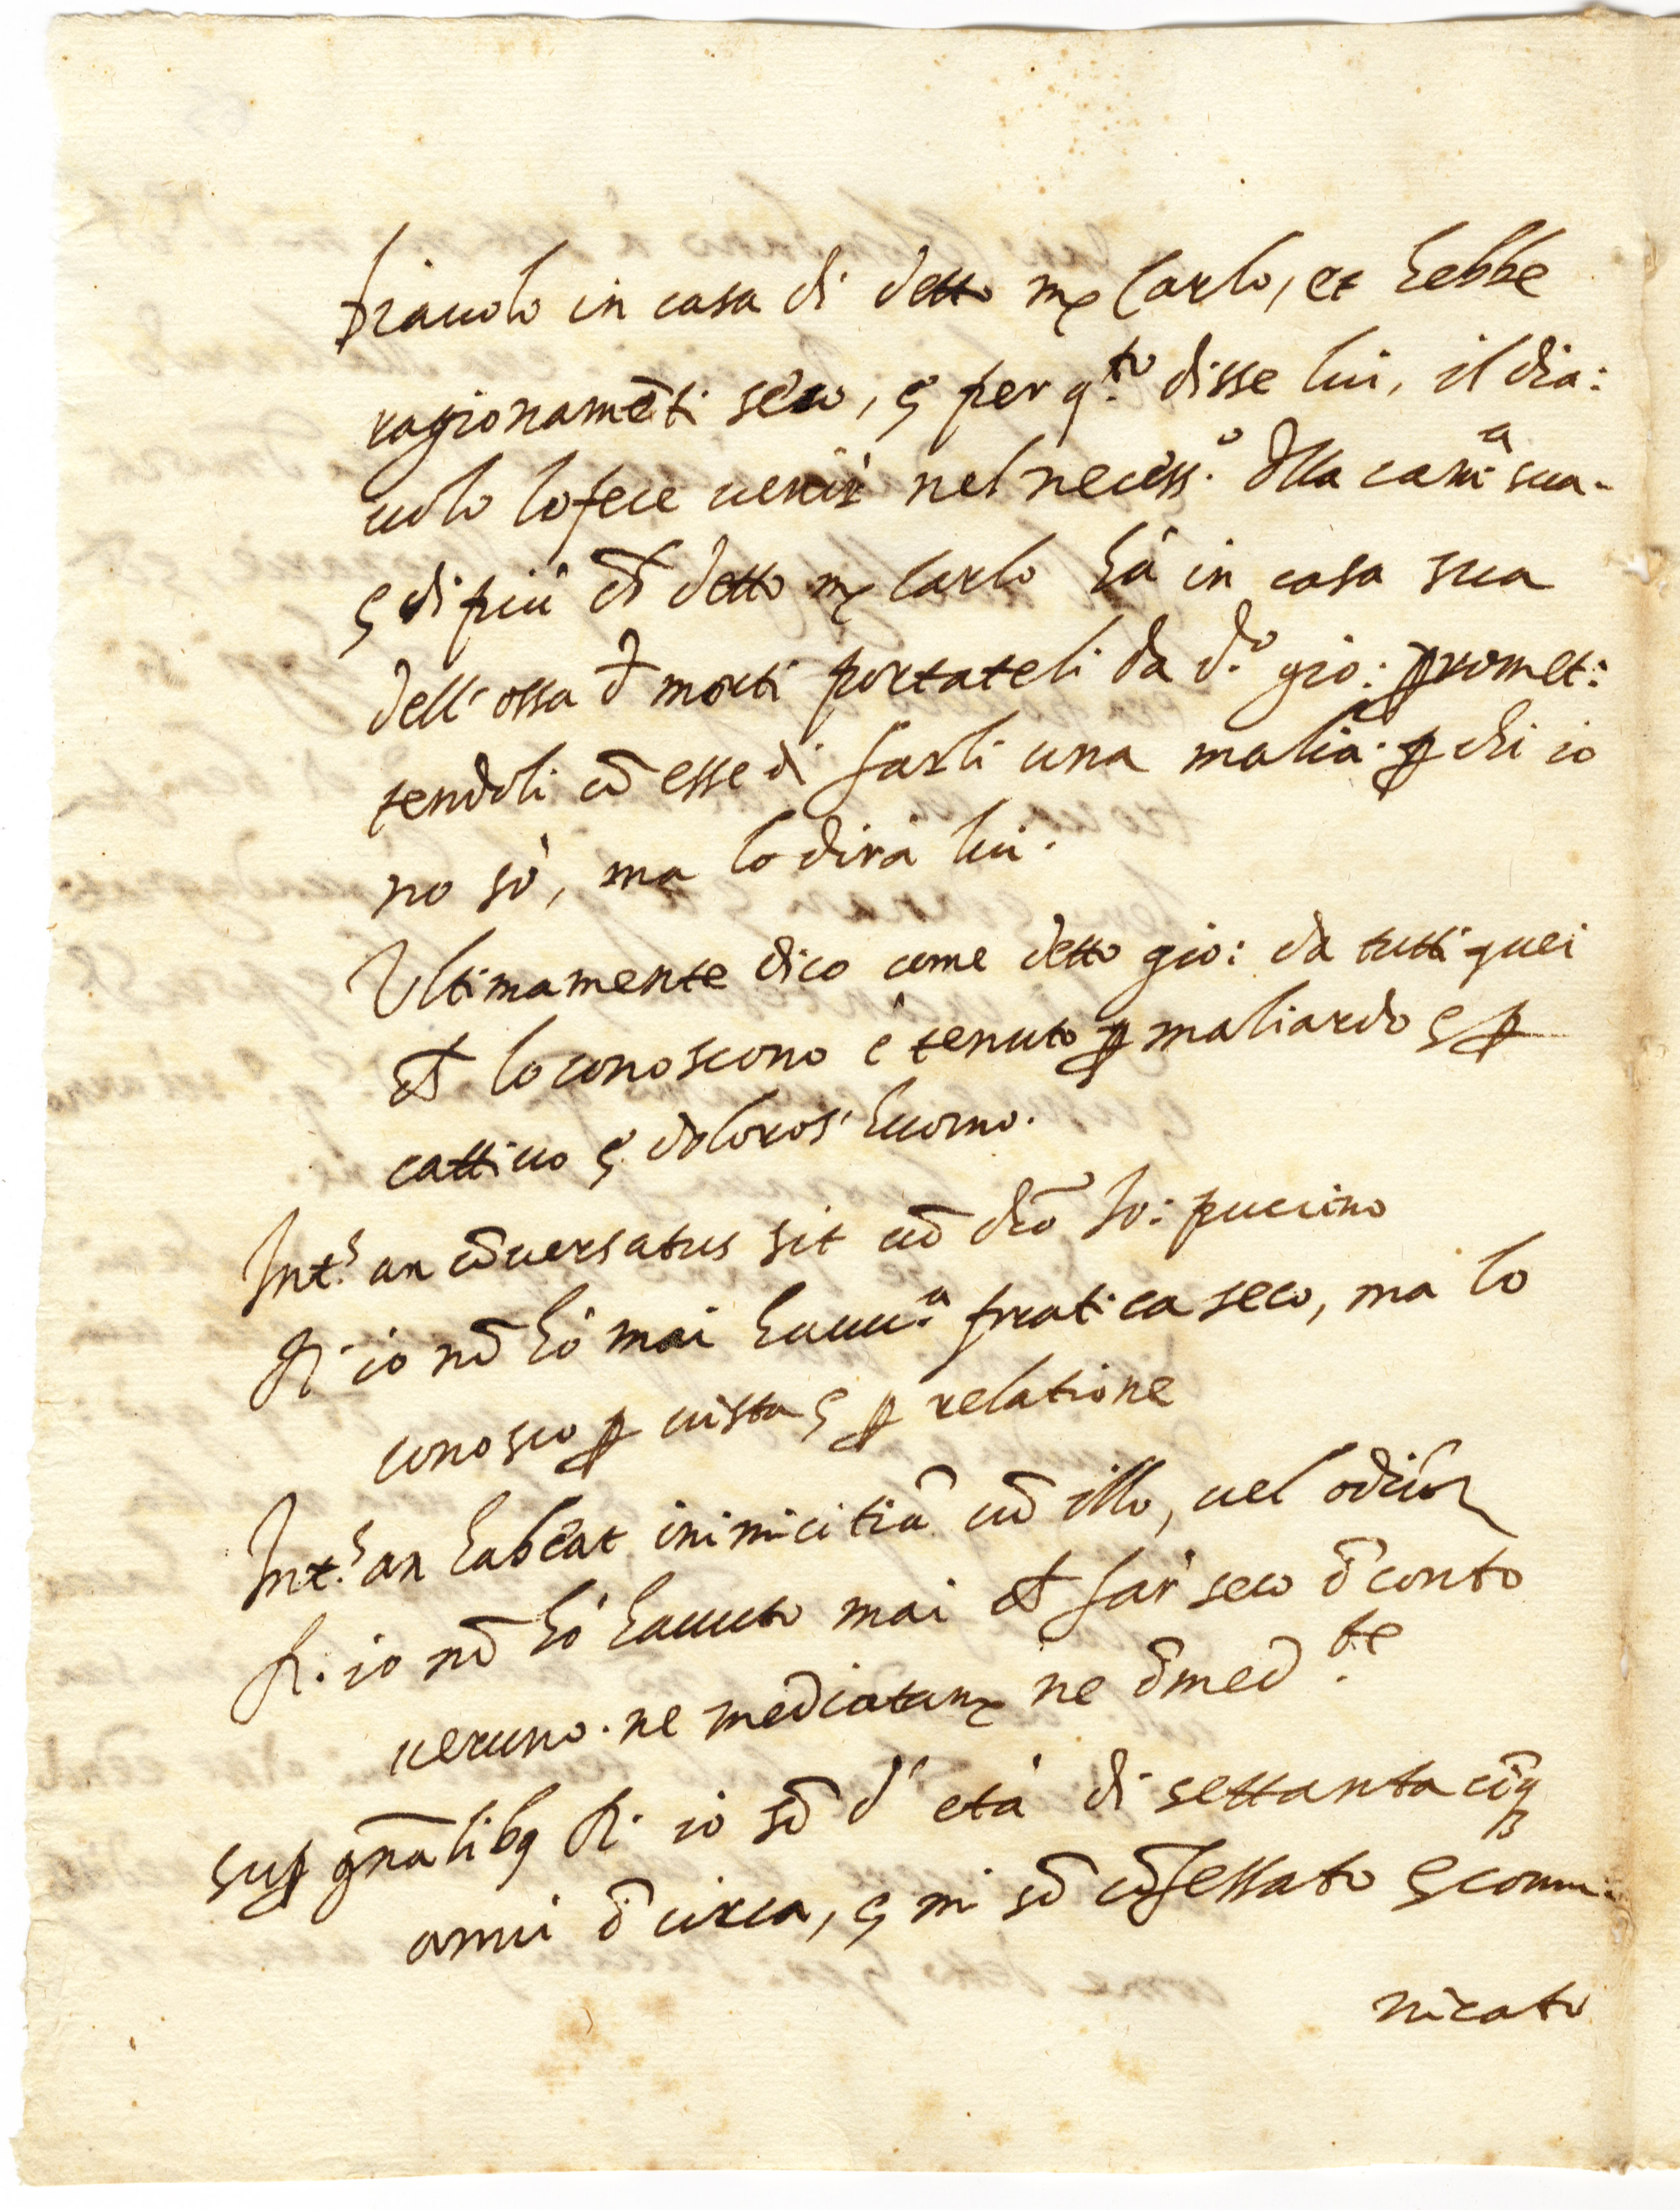 diauolo in casa di detto mẹ Carlo, et hebbe
ragionamēti seco, ę per q.to disse lui, il dia:
uolo lo fece uenir nel necess.o dlla cam.a sua.
ę di più ch̃ detto mẹ Carlo hà in casa sua
dell'ossa d̃ morti portateli da d.o gio: ꝓmet:
tendoli cō esse di farli una malia ꝑ chi io
nō sò, ma lo dirà lui.
Ultimamente dico come detto gio: da tutti quei
ch̃ lo conoscono è tenuto ꝑ maliardo ę ꝑ
cattiuo ę doloros' huomo.
Int.s an cōuersatus sit cū dco Io: puccino
R. io nō hò mai hauu.a pratica seco, ma lo
conosco ꝑ uista ę ꝑ relatione
Int.s an habeat inimicitiā cū illo, uel odiū
R. io nō hò hauuto mai ch̃ far seco d̄ conto
ueruno. ne mediatamẹ ne d̄med.te
suꝑ gñalibꝫ R. io sō d' età di settanta cīqꝫ
anni ō circa, ę mi sō cōfessato ę comu:
nicato